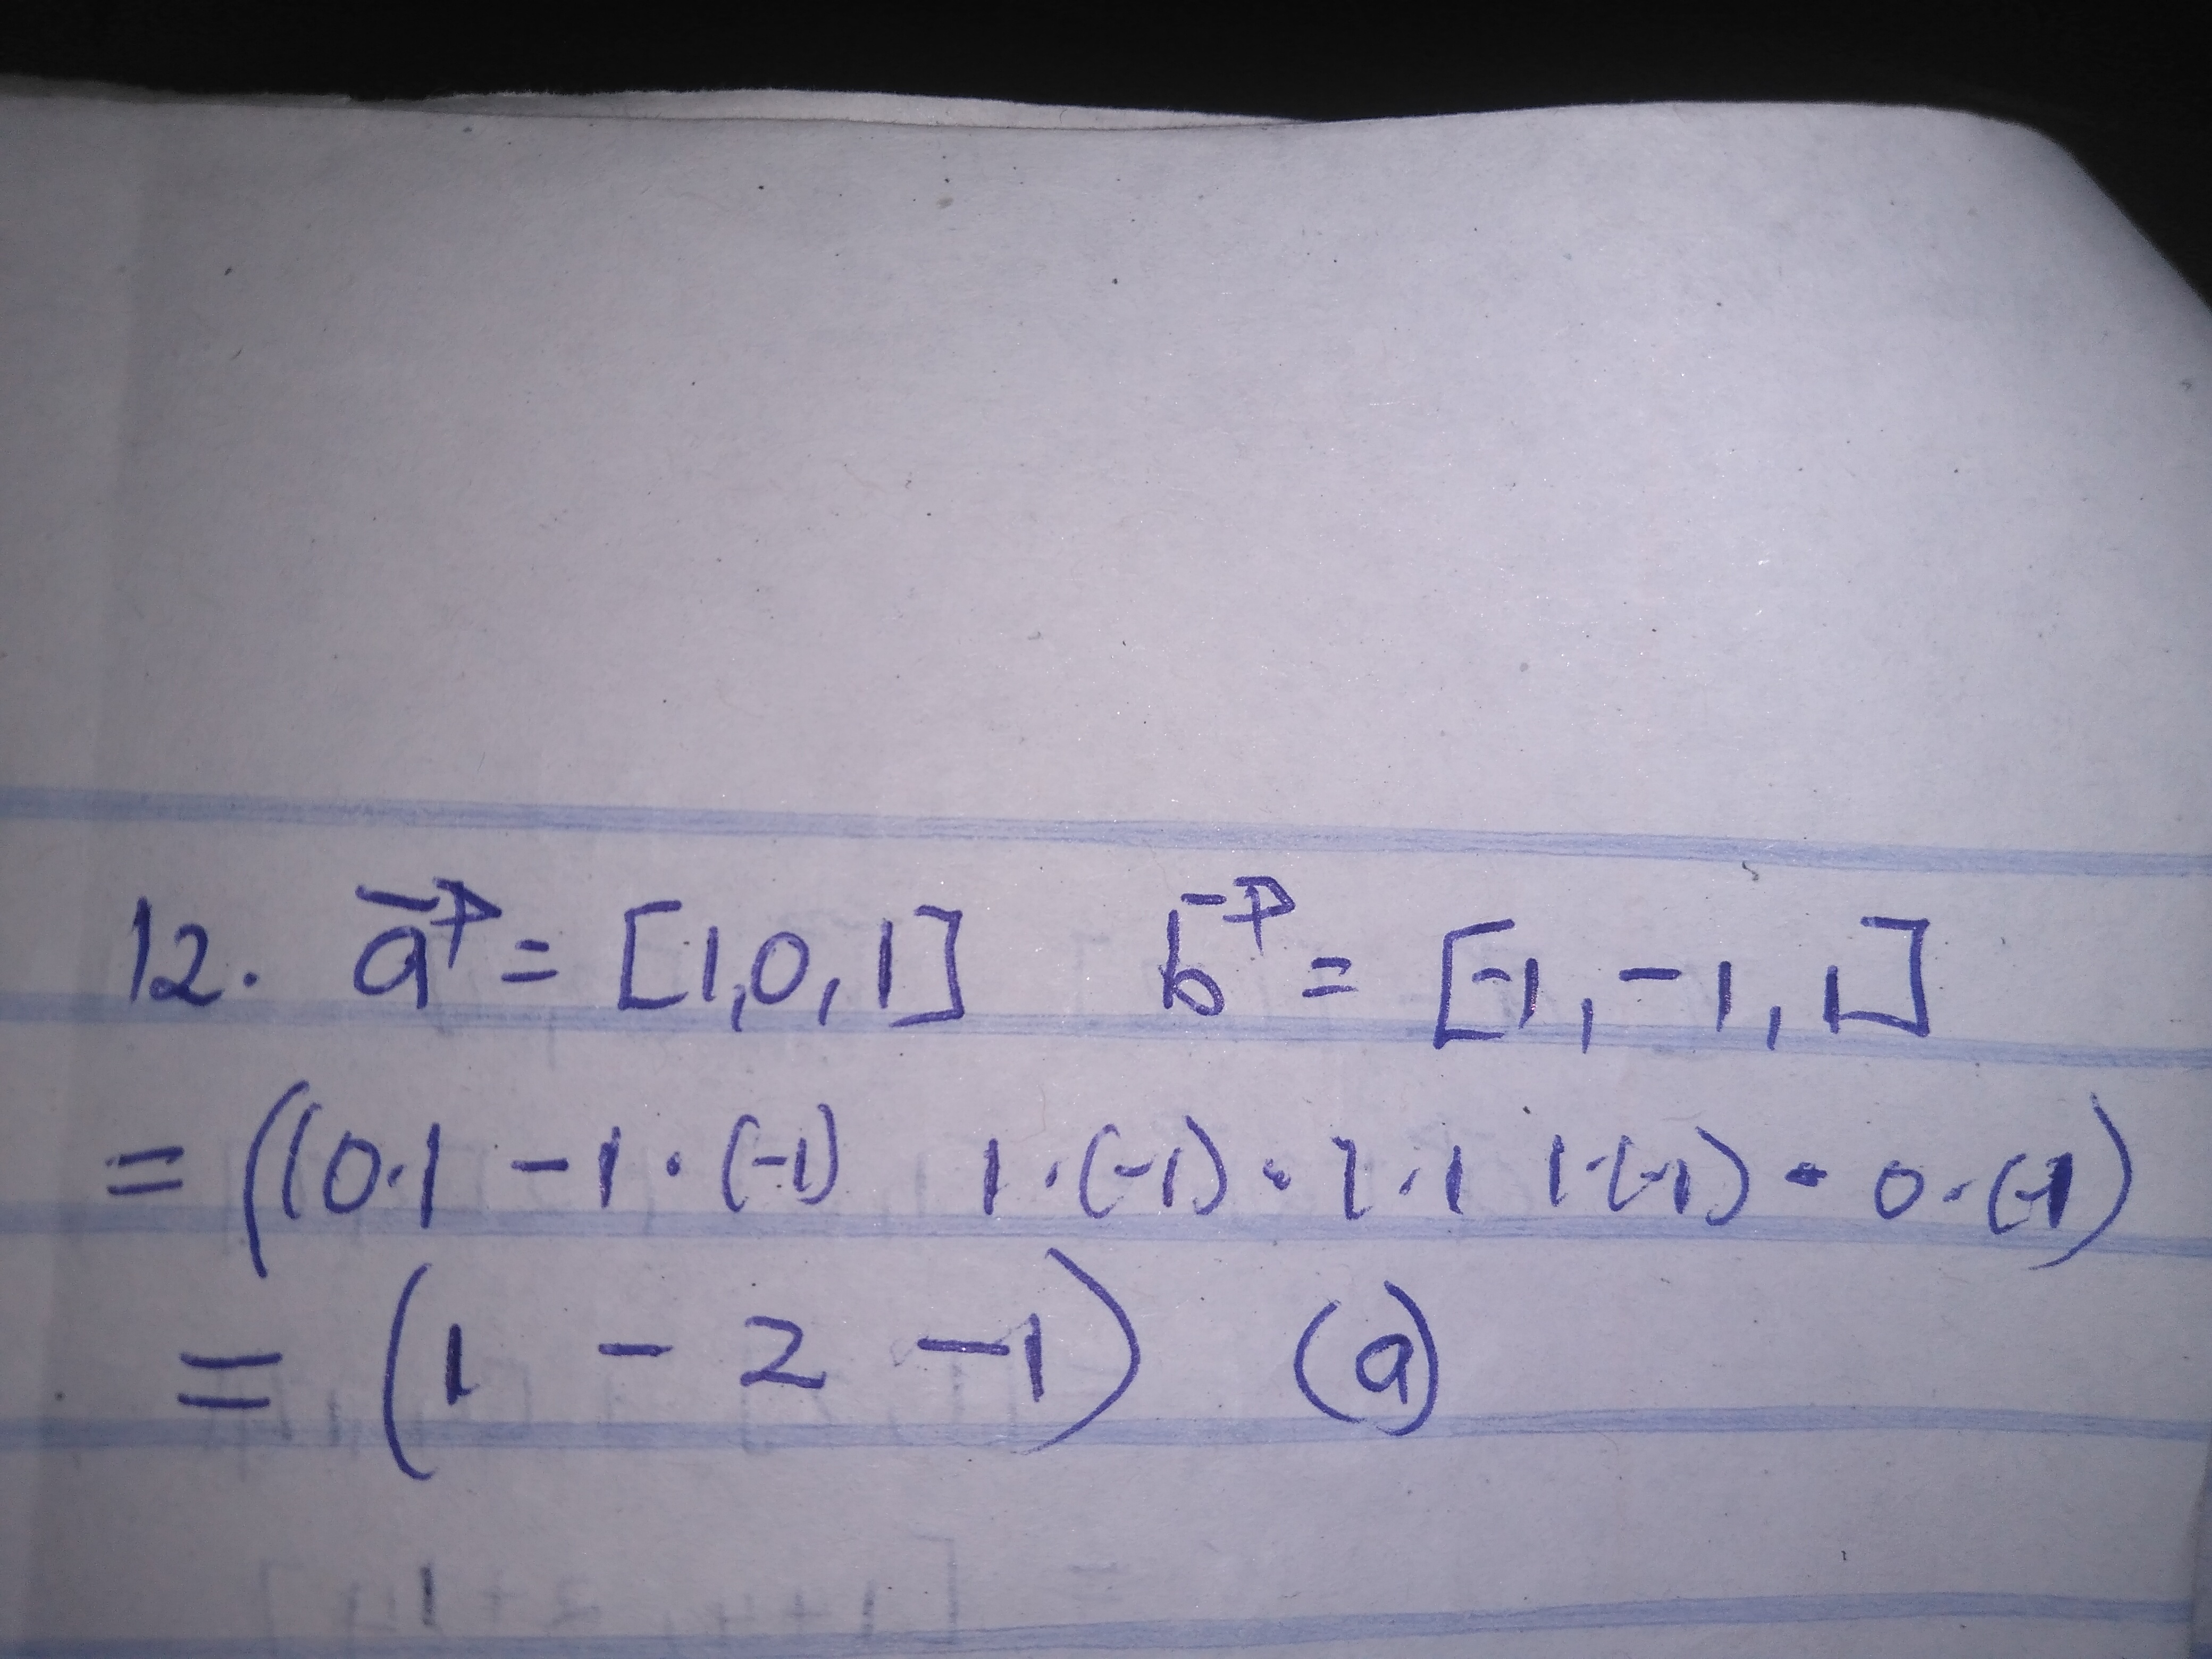 12. a⃗ = [1,0,1] b⃗ = [-1,-1,1]
= ((0·1 -1·(-1) 1·(-1)·1·1 1·(-1) - 0·(-1)
= (1 - 2 -1) (a)